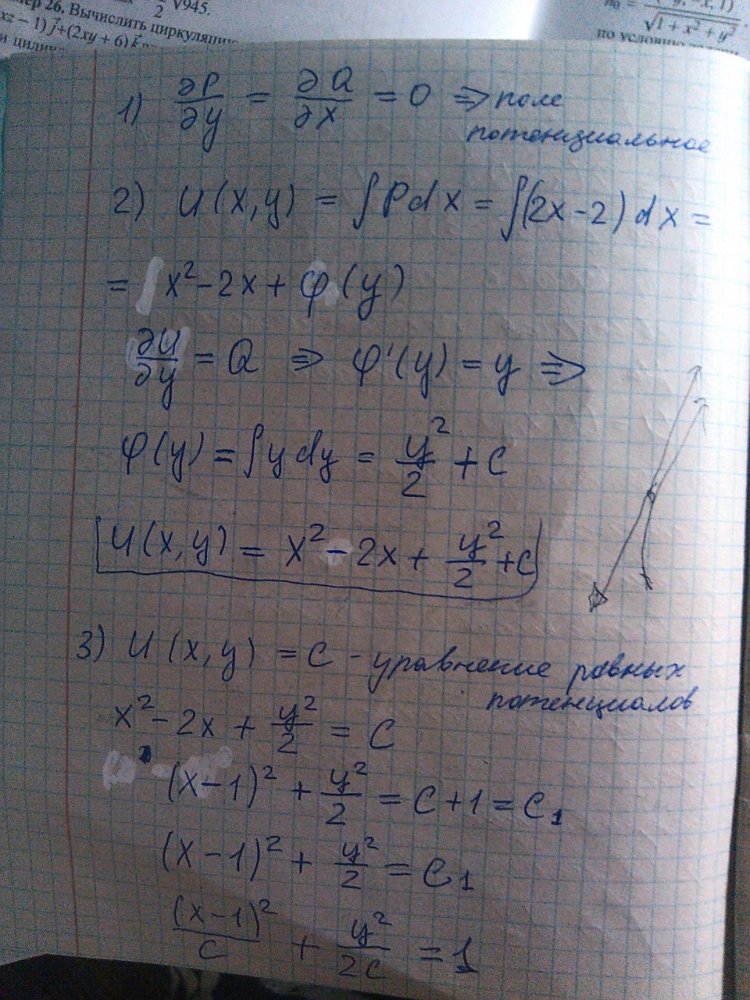 26. Вычислить циркуляцию
xz − 1) j⃗ + (2xy + 6) k⃗
и
2 √945.
√1 + x² + y²
по
1) ∂P/∂y = ∂Q/∂x = 0 ⇒ поле
потенциальное
2) U(x,y) = ∫Pdx = ∫(2x-2)dx =
= x² - 2x + φ(y)
∂U/∂y = Q ⇒ φ'(y) = y ⇒
φ(y) = ∫ydy = y²/2 + C
U(x,y) = x² - 2x + y²/2 + C
3) U(x,y) = C - уравнение равных
потенциалов
x² - 2x + y²/2 = C
(x-1)² + y²/2 = C+1 = C₁
(x-1)² + y²/2 = C₁
(x-1)²/C + y²/2C = 1